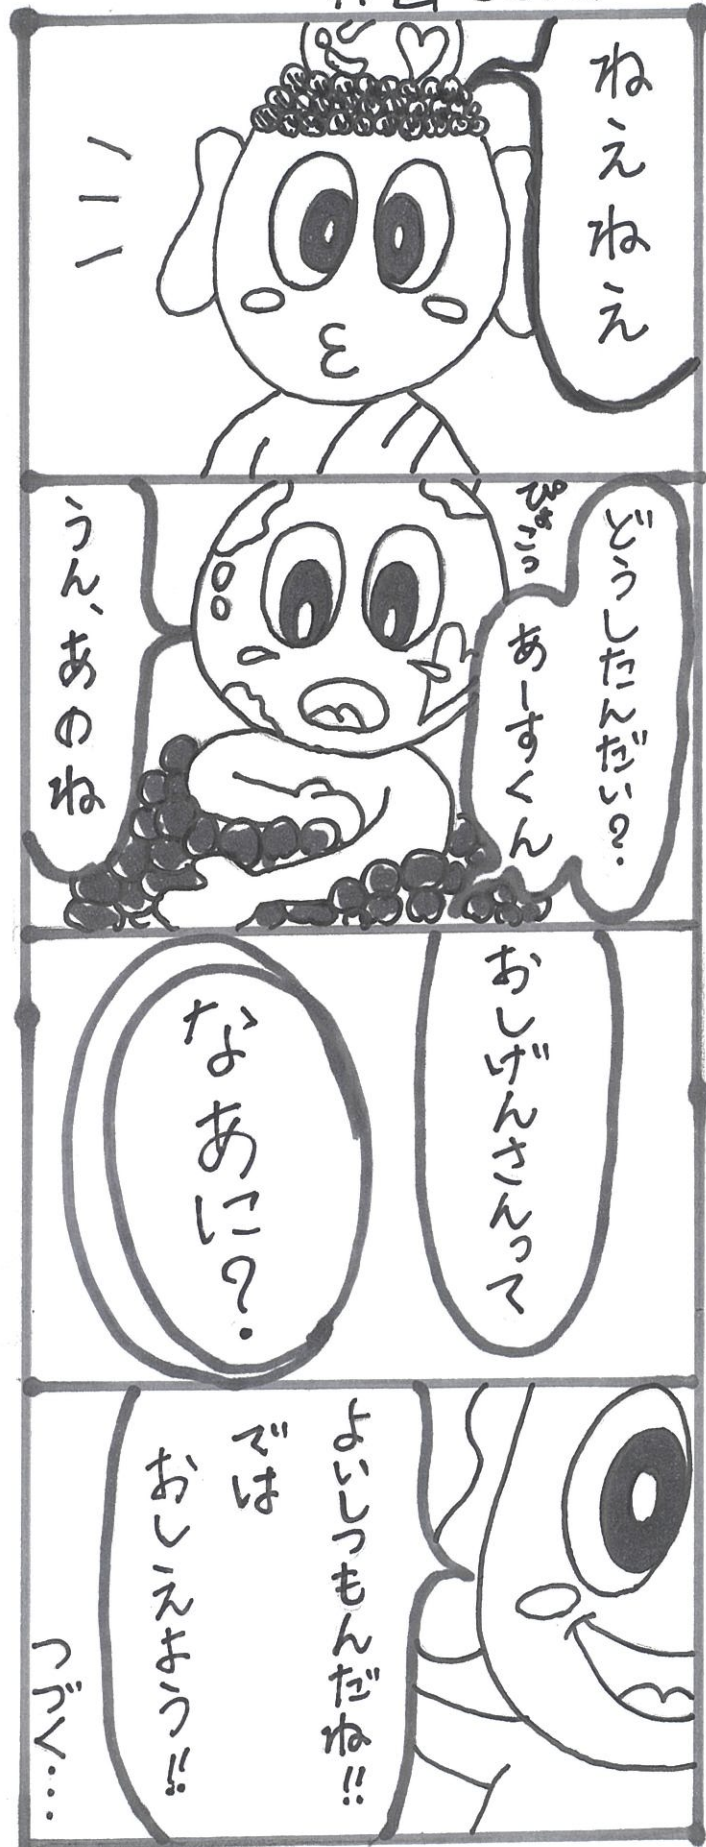 ねえねえ
どうしたんだい?
あーすくん
ぴょこっ
うん、あのね
おしげんさんって
なあに?
よいしつもんだね!!
では
おしえよう!!
つづく…